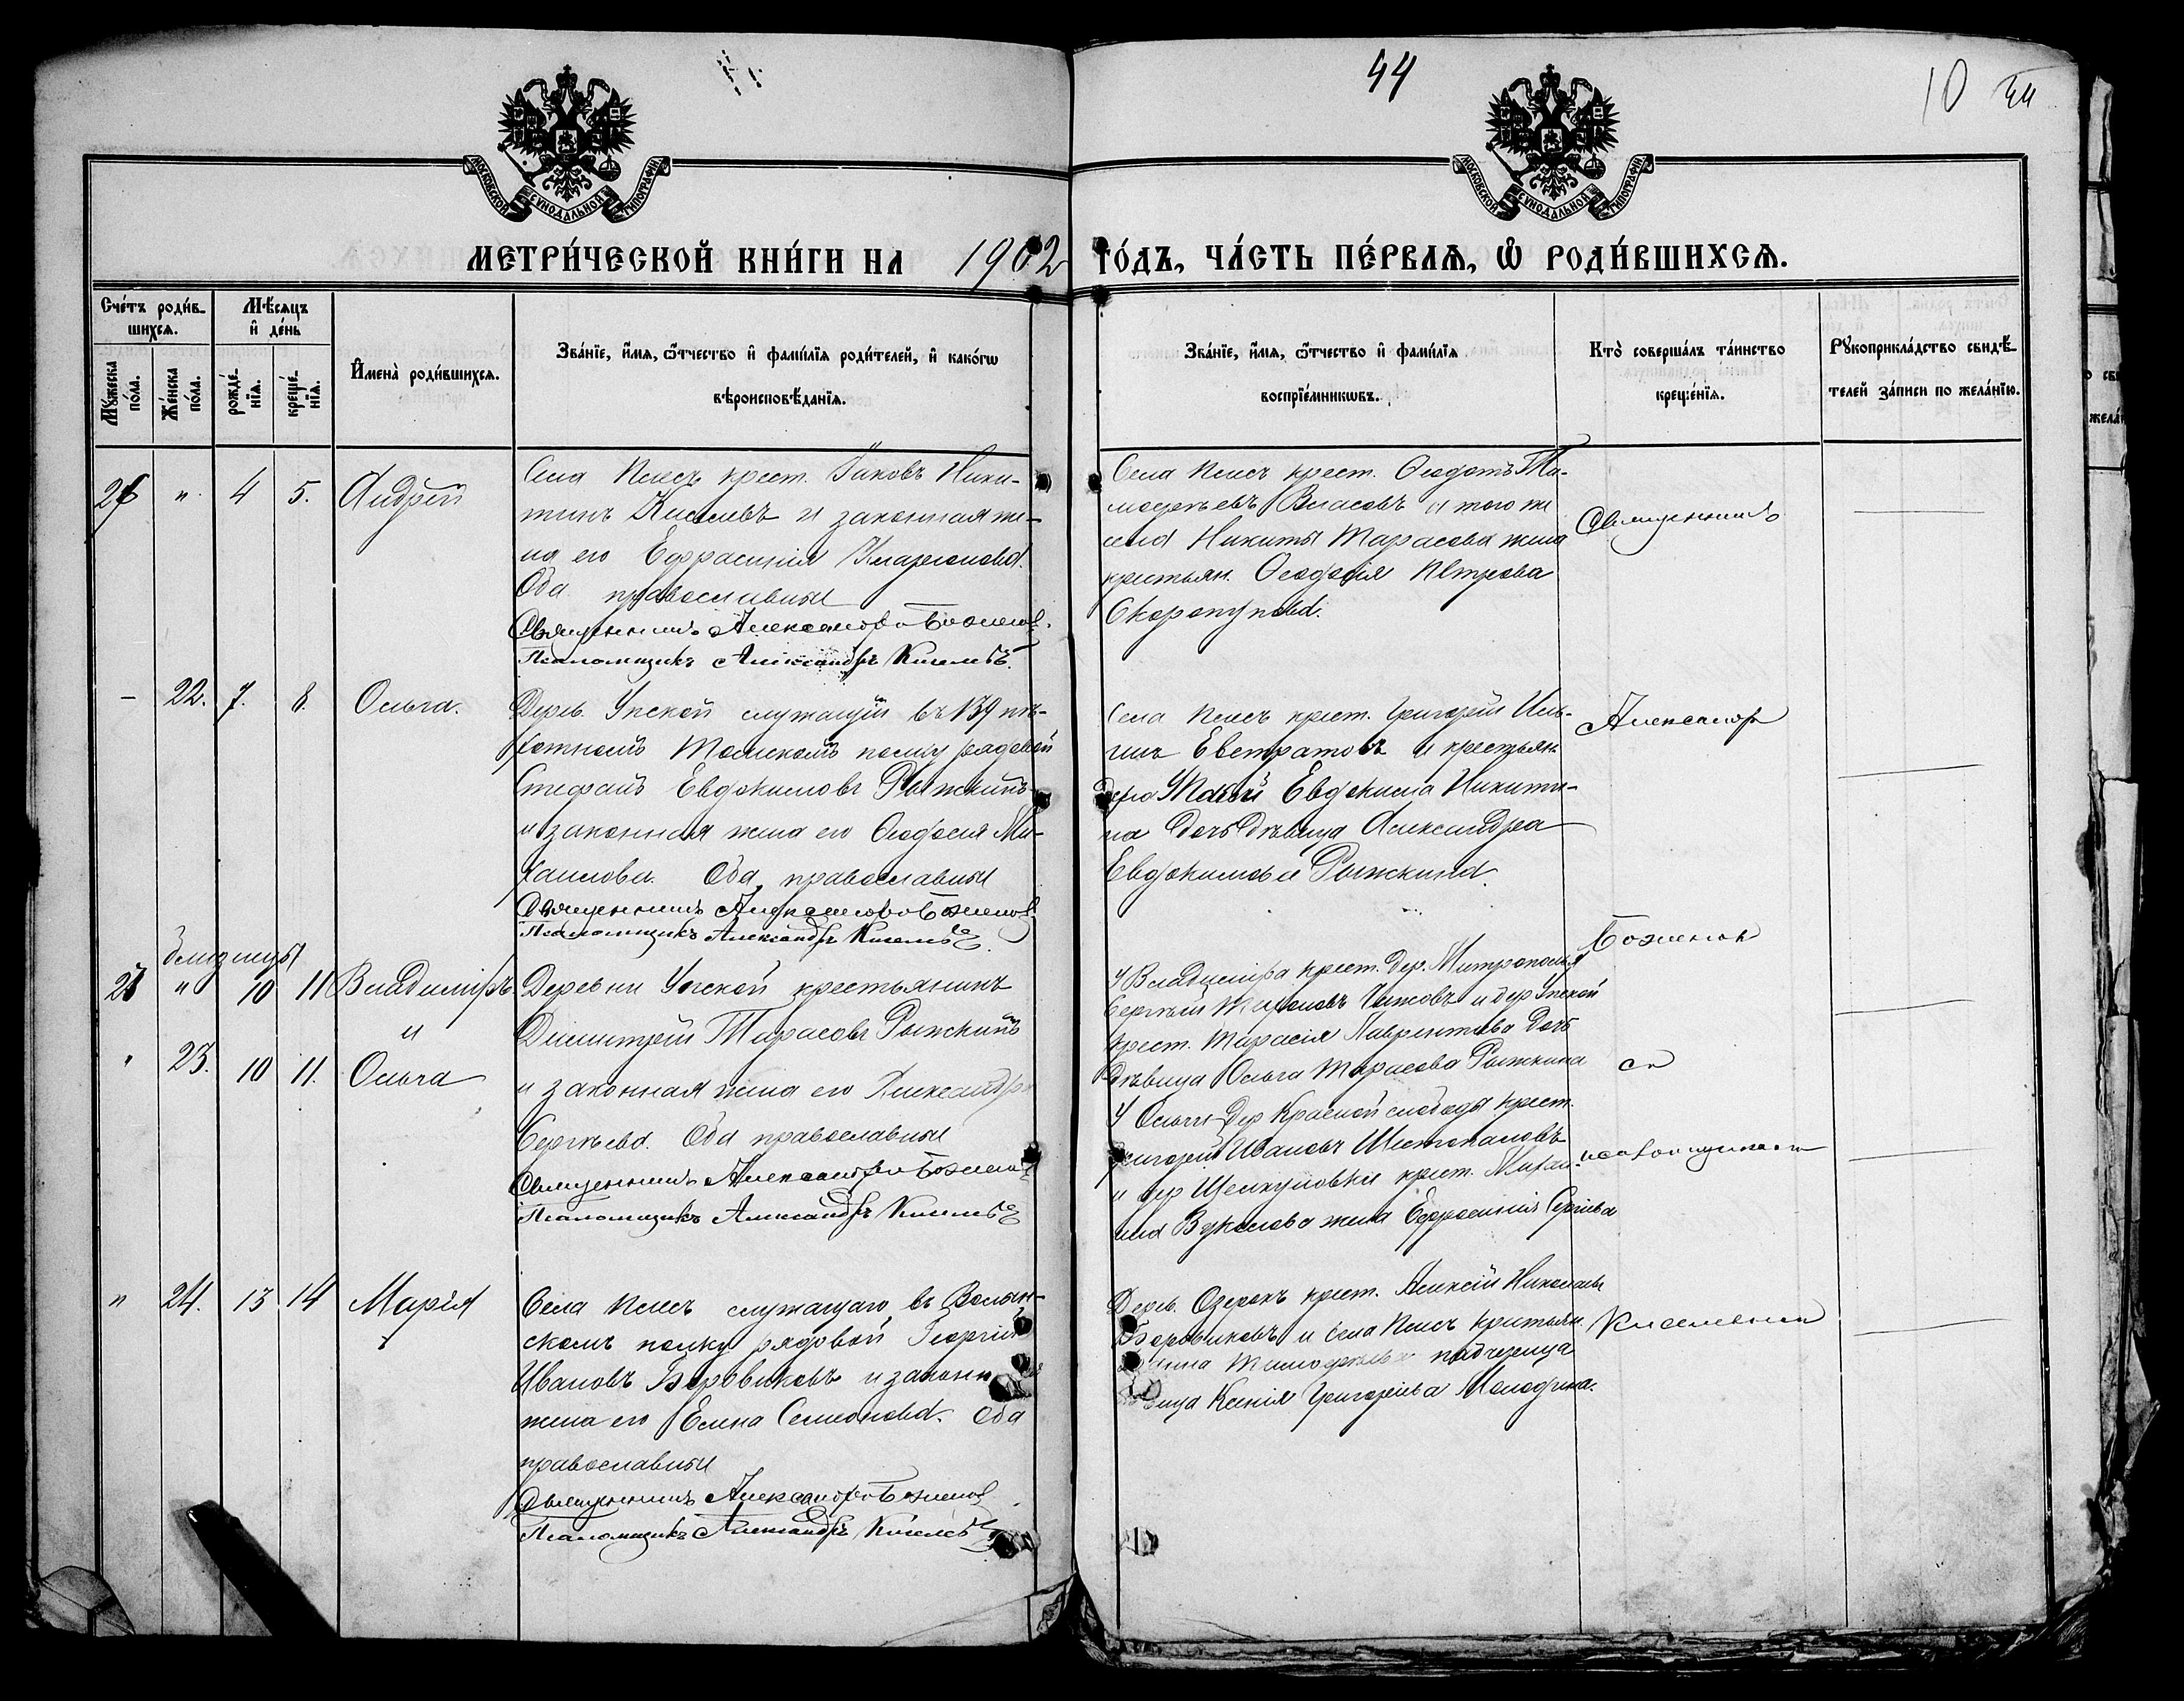 44
10 44
МОСКОВСКОЙ СѴНОДАЛЬНОЙ ТИПОГРАФІИ
МОСКОВСКОЙ СѴНОДАЛЬНОЙ ТИПОГРАФІИ
МЕТРИ́ЧЕСКОЙ КНИ́ГИ НА 1902 ГО́ДЪ, ЧА́СТЬ ПЕ́РВАѦ, Ѡ РОДИ́ВШИХСѦ.
Сче́тъ роди́в-
шихсѧ.
Мѣ́сѧцъ
и҆ де́нь
Мꙋ́жеска
по́ла.
Же́нска
по́ла.
рожде́-
нїѧ.
креще́-
нїѧ.
И҆мена̀ роди́вшихсѧ.
Зва́нїе, и҆́мѧ, ѻ҆́тчество и҆ фами́лїѧ роди́телей, и҆ како́гѡ
вѣроисповѣ́данїѧ.
Зва́нїе, и҆́мѧ, ѻ҆́тчество и҆ фами́лїѧ
воспрїе́мникѡвъ.
Кто̀ соверша́лъ та́инство
креще́нїѧ.
Рꙋкоприкла́дство свидѣ́-
телей за́писи по жела́нїю.
26 " 4 5. Андрей
Села крест. Іаковъ Ники-
тинъ Киселевъ и законная же-
на его Евфрасинія Иларіонова.
Оба православныи
Священникъ Александръ Боженов
Псаломщикъ Александръ Киселевъ
Села крест. Ѳеодотъ Ти-
моѳеевъ Власовъ и того же
села Никиты Тарасова жена
крестьян. Ѳеодосія Петрова
Скоропупова.
Священникъ
— 22. 7. 8. Ольга.
Дерев. Упской служащій въ 139 пѣ-
хотномъ полку рядовой
Стефанъ Евдокимовъ Рыжкинъ
и законная жена его Ѳеодосія Ми-
хаилова. Оба православныи
Священникъ Александръ Боженов
Псаломщикъ Александръ Киселевъ
Села крест. Григорій Иль-
инъ Евстратовъ и крестьян
Евдокима Никити-
на дочь дѣвица Александра
Евдокимова Рыжкина.
Александръ
Боженов
близнецы
" 10 11 Владиміръ
и
" 23. 10 11. Ольга
Деревни Упской крестьянинъ
Димитрій Тарасовъ Рыжкинъ
и законная жена его Александра
Сергѣева. Оба православныи
Священникъ Александръ Боженов
Псаломщикъ Александръ Киселевъ
У Владиміра крест. дер. Митрополья
Сергѣй Чижовъ и дер Упской
крест. Тарасія Лаврентьева дочь
дѣвица Ольга Тарасова Рыжкина
У Ольги дер Красной слободы крест.
Григорій Ивановъ Шестопаловъ
и дер крест. Михаи-
ила Вуколова жена Евфросинія Сергіева
съ
псаломщикомъ
" 24. 13 14 Марія
Села служащаго въ Волын-
скомъ полку рядовой Георгій
Ивановъ Боровиковъ и законн
жена его Елена Семенова. Оба
православныи
Священникъ Александръ Боженов
Псаломщикъ Александръ Киселевъ
Дерев. Озерокъ крест. Алексій Николаевъ
Боровиковъ и села крестьян.
Тимоѳеева падчерица
Ксенія Григорьева Молодкина.
Киселевым